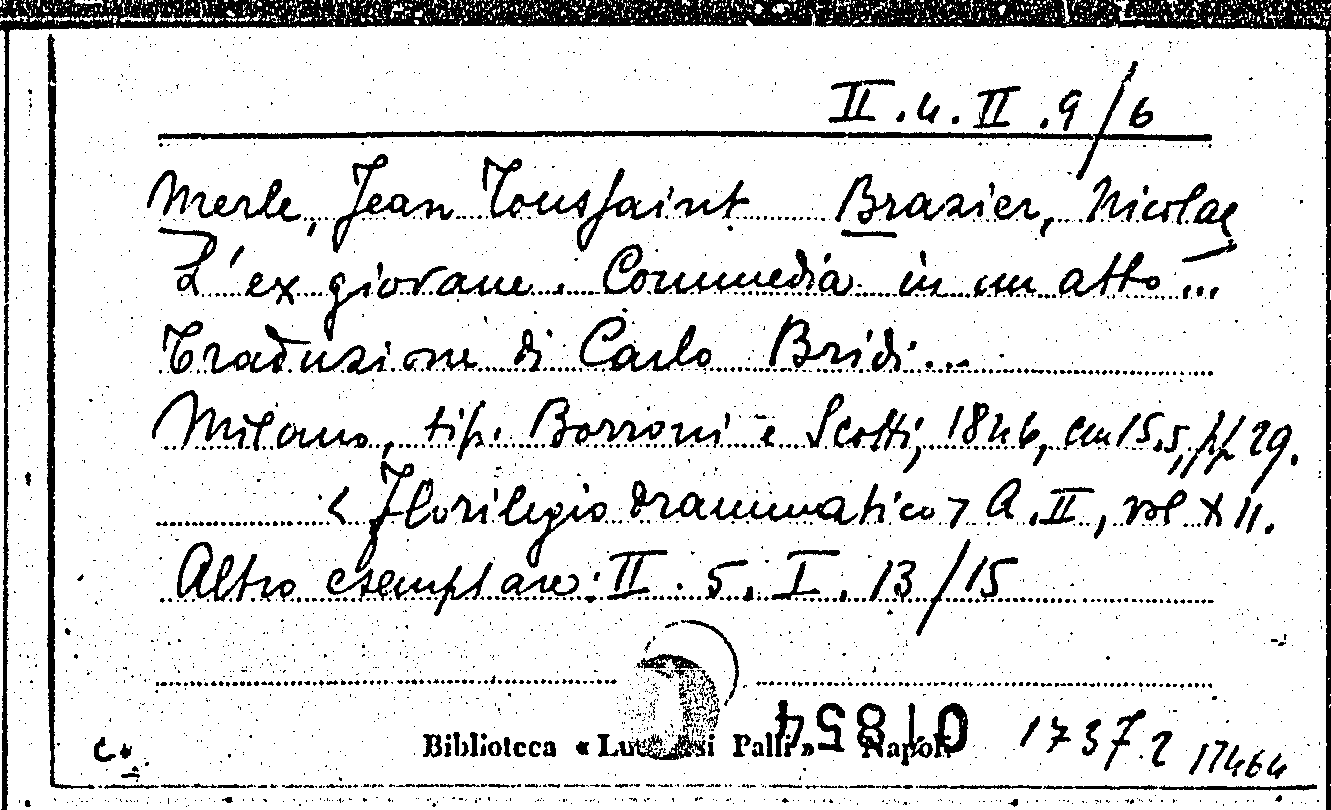 II.4.II.9/6
Merle, Jean Toussaint Brazier, Nicolas
L'ex giovane. Commedia in un atto...
Traduzione di Carlo Bridi...
Milano, tip. Borroni e Scotti, 1846, cm 15.5, pp. 29.
< Florilegio drammatico > A. II, vol XII.
Altro esemplare: II. 5. I. 13/15
01854
Biblioteca « Lucchesi Palli » Napoli
17372 17464